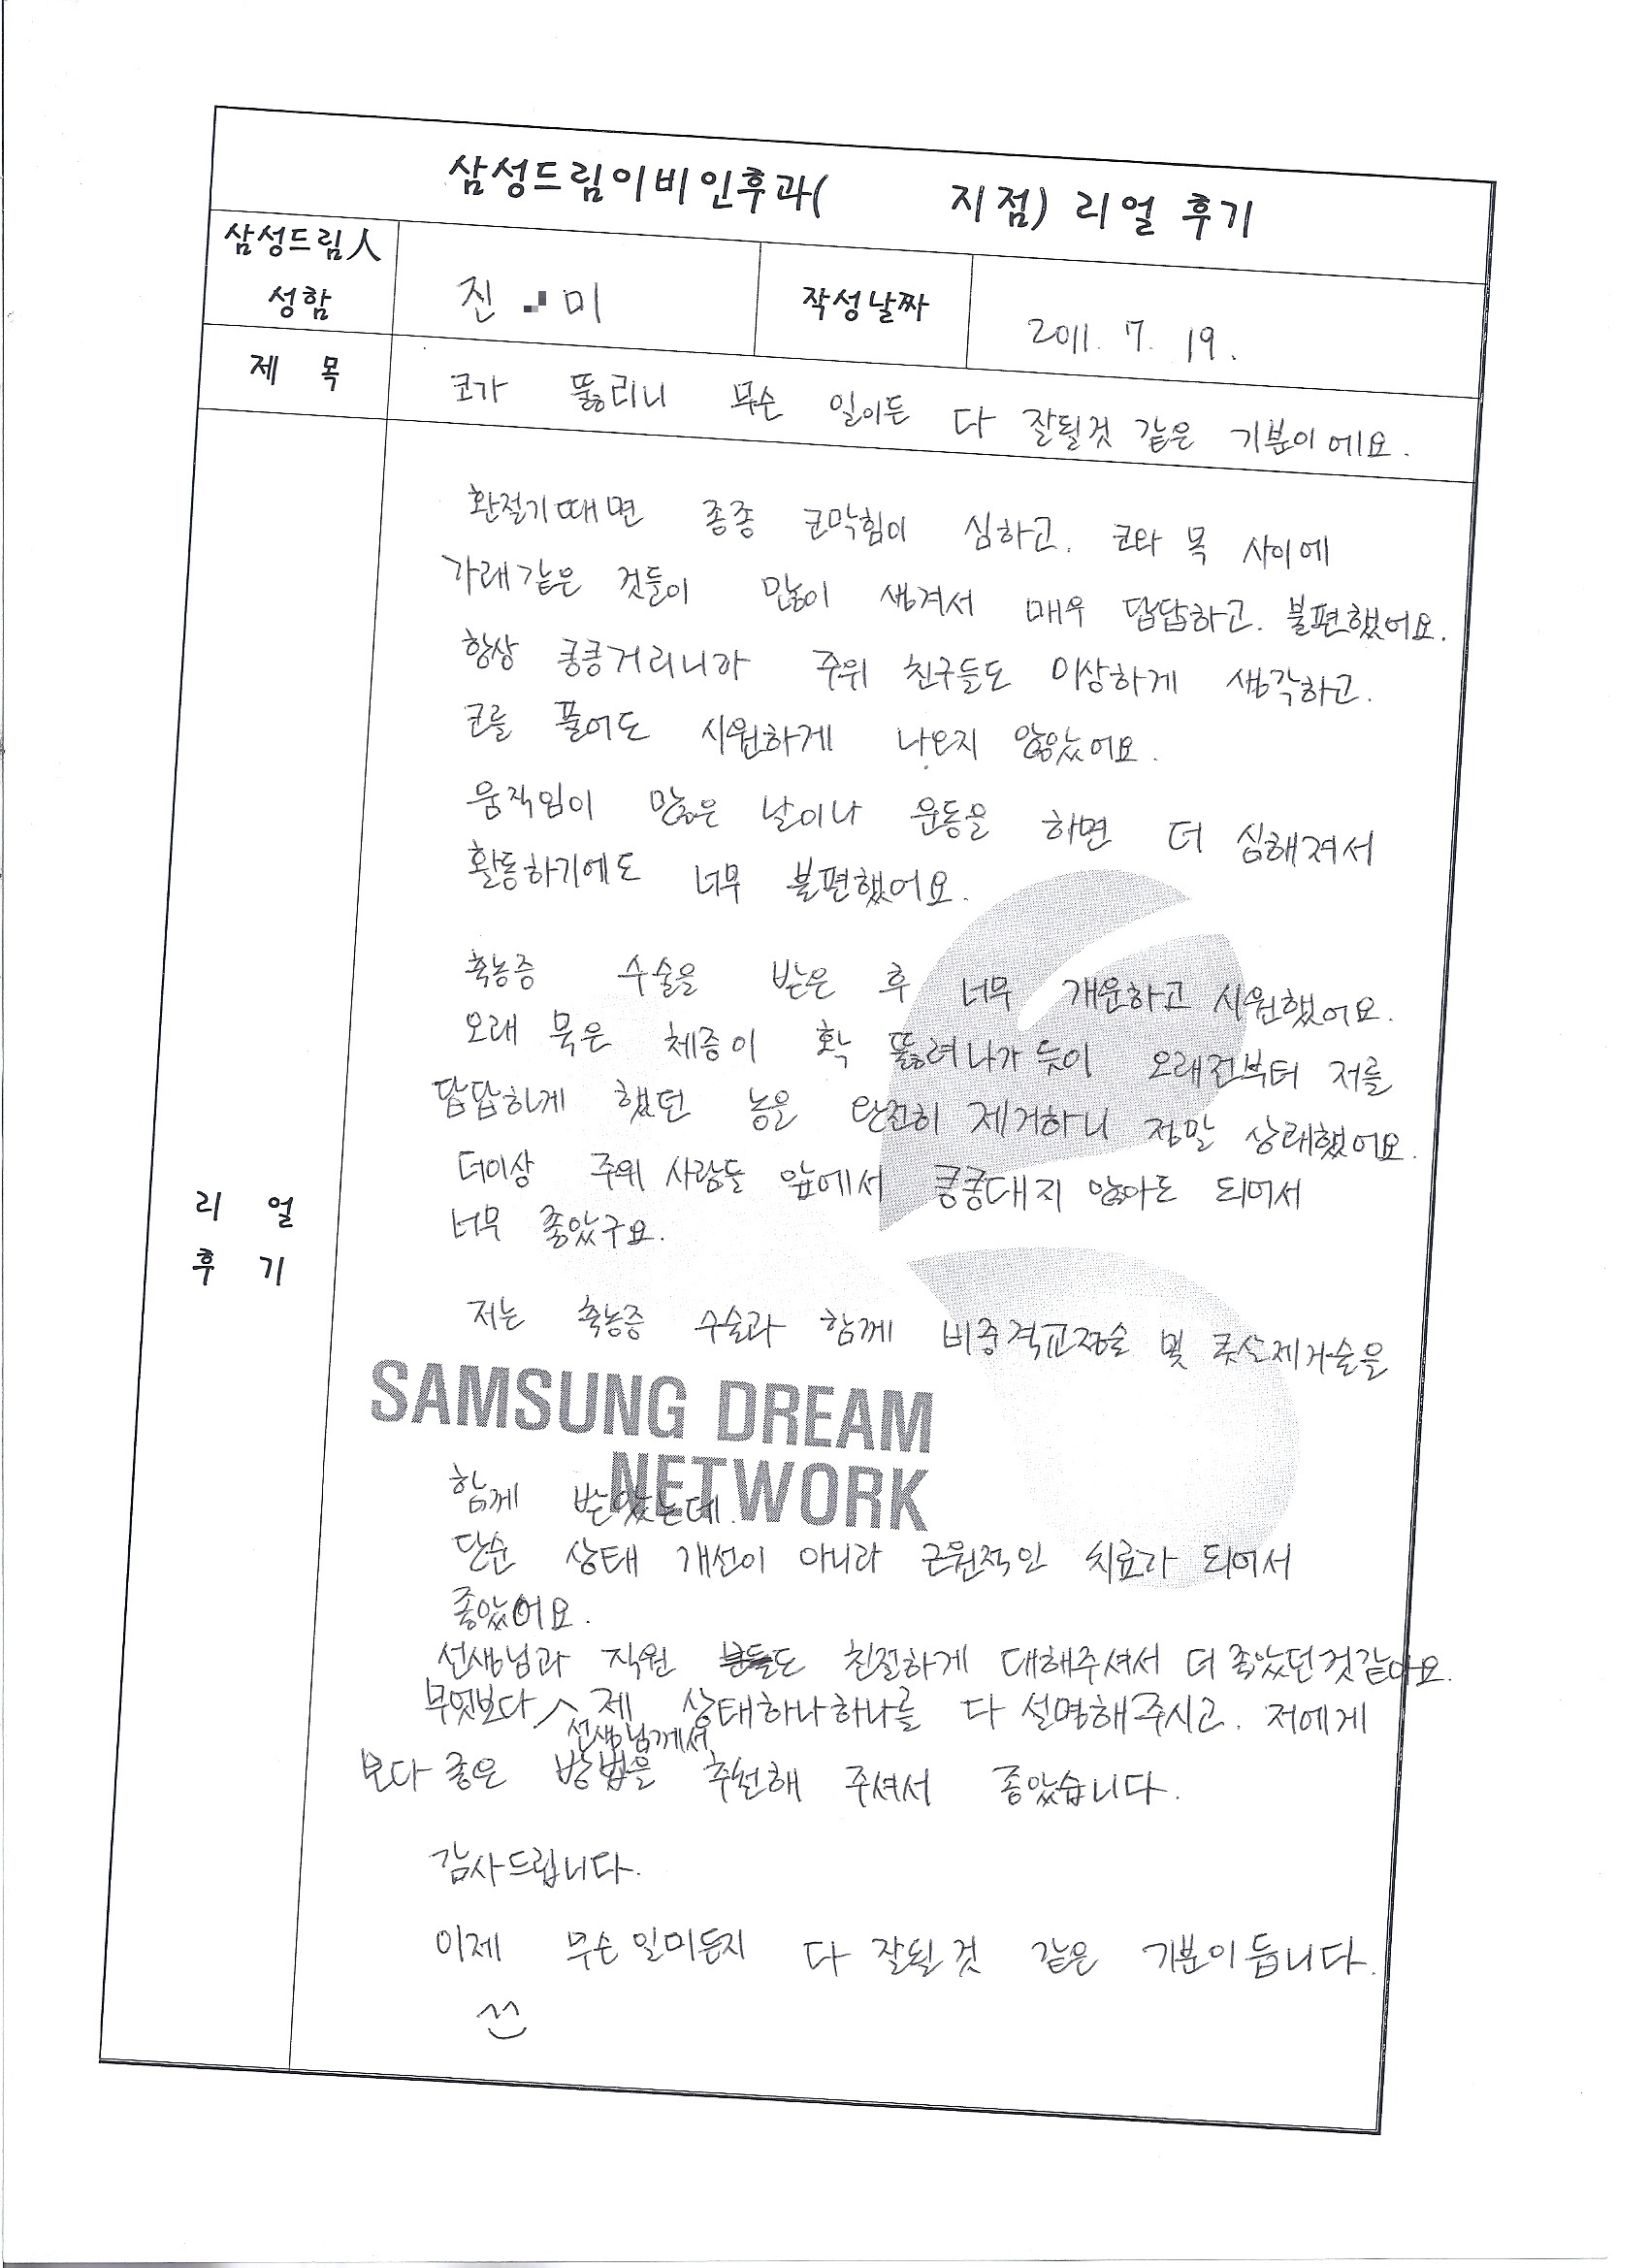 삼성드림이비인후과( 지점) 리얼 후기
삼성드림人
성함
진 미
작성날짜
2011. 7. 19.
제 목
코가 뚫리니 무슨 일이든 다 잘될것 같은 기분이에요.
환절기때면 종종 코막힘이 심하고. 코와 목 사이에
가래같은 것들이 많이 생겨서 매우 답답하고. 불편했어요.
항상 킁킁거리니까 주위 친구들도 이상하게 생각하고.
코를 풀어도 시원하게 나오지 않았어요.
움직임이 많은 날이나 운동을 하면 더 심해져서
활동하기에도 너무 불편했어요.
축농증 수술을 받은 후 너무 개운하고 시원했어요.
오래 묵은 체증이 확 뚫려나가듯이 오래전부터 저를
답답하게 했던 농을 완전히 제거하니 정말 상쾌했어요.
더이상 주위 사람들 앞에서 킁킁대지 않아도 되어서
너무 좋았구요.
리 얼
후 기
저는 축농증 수술과 함께 비중격교정술 및 제거술을
SAMSUNG DREAM
NETWORK
함께 받았는데.
단순 상태 개선이 아니라 근원적인 치료가 되어서
좋았어요.
선생님과 직원 분들도 친절하게 대해주셔서 더 좋았던것같아요.
무엇보다 선생님께서 제 상태하나하나를 다 설명해주시고. 저에게
보다 좋은 방법을 추천해 주셔서 좋았습니다.
감사드립니다.
이제 무슨일이든지 다 잘될것 같은 기분이 듭니다.
^^